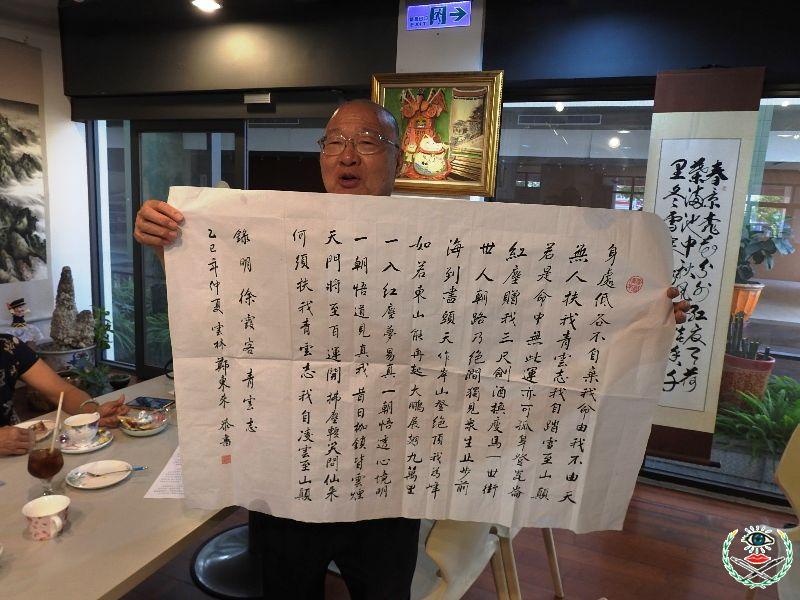 身處低谷不自棄我命由我不由天
無人扶我青雲志我自踏雪至山巔
若是命中無此運亦可孤身登崑崙
紅塵贈我三尺劍酒換瘦馬一世街
世人朝路乃絕澗獨見眾生止步前
海到盡頭天作岸山登絕頂我為峰
如若東山能再起大鵬展翅九萬里
一入紅塵夢易真一朝悟透心境明
一朝悟道見真我昔日枷鎖皆雲煙
天門將至百運開拂塵轉笑問仙來
何須扶我青雲志我自凌雲至山巔
錄明徐霞客青雲志
乙巳年仲夏雲林鄭東來恭書
EXIT
春景
滿池中秋風
里冬雪